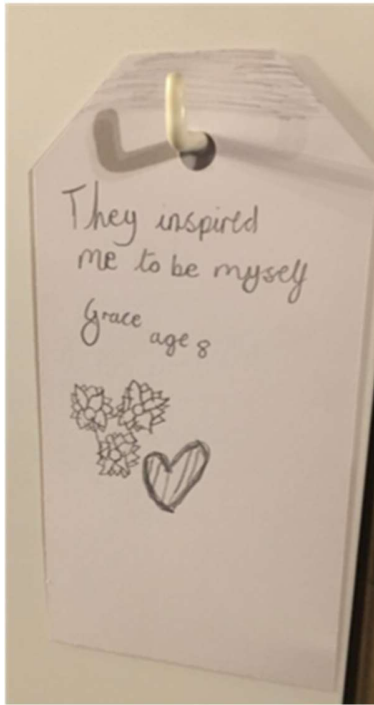 They inspired
me to be myself
Grace age 8